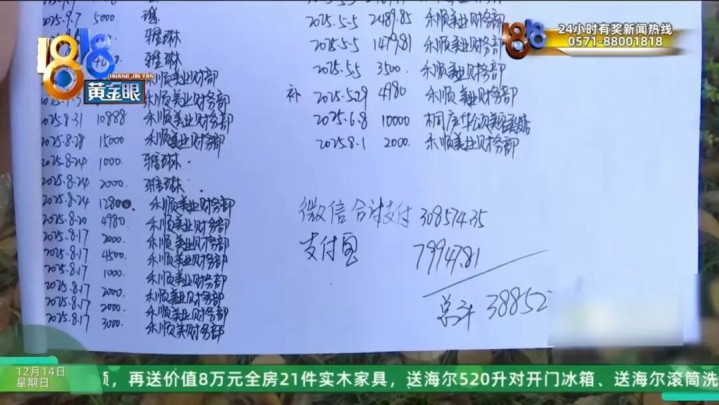 24小时有奖新闻热线
0571-88001818
1818
HUANG JIN YAN
黄金眼
5000
雅琳
雅琳
禾顺美业财务部
禾顺美业财务部
2025.8.31 10888 禾顺美业财务部
2025.8.28 15000 禾顺美业财务部
2025.8.24 1000. 雅琳.
2025.8.24 2000. 雅琳.
2025.8.24 禾顺美业财务部
2025.8.20 4980 禾顺美业财务部
2025.8.17 2000. 禾顺美业财务部
2025.8.17 4500 禾顺美业财务部
2025.8.17 1000 禾顺美业财务部
2025.8.17 2000. 禾顺美业财务部
2025.8.17 2000. 禾顺美业财务部
2025.8.17 3000. 禾顺美业财务部
2025.5.5 2489.85 禾顺美业财务部
2025.5.5 1479.81 禾顺美业财务部
2025.5.5 3500 禾顺美业财务部
补 2025.5.29 4980 禾顺美业财务部
2025.6.8 10000
2025.8.1 2000. 禾顺美业财务部
微信合计支付 308574.35
支付宝 79947.81
总计 38852
12月14日
星期日
, 再送价值8万元全房21件实木家具，送海尔520升对开门冰箱、送海尔滚筒洗